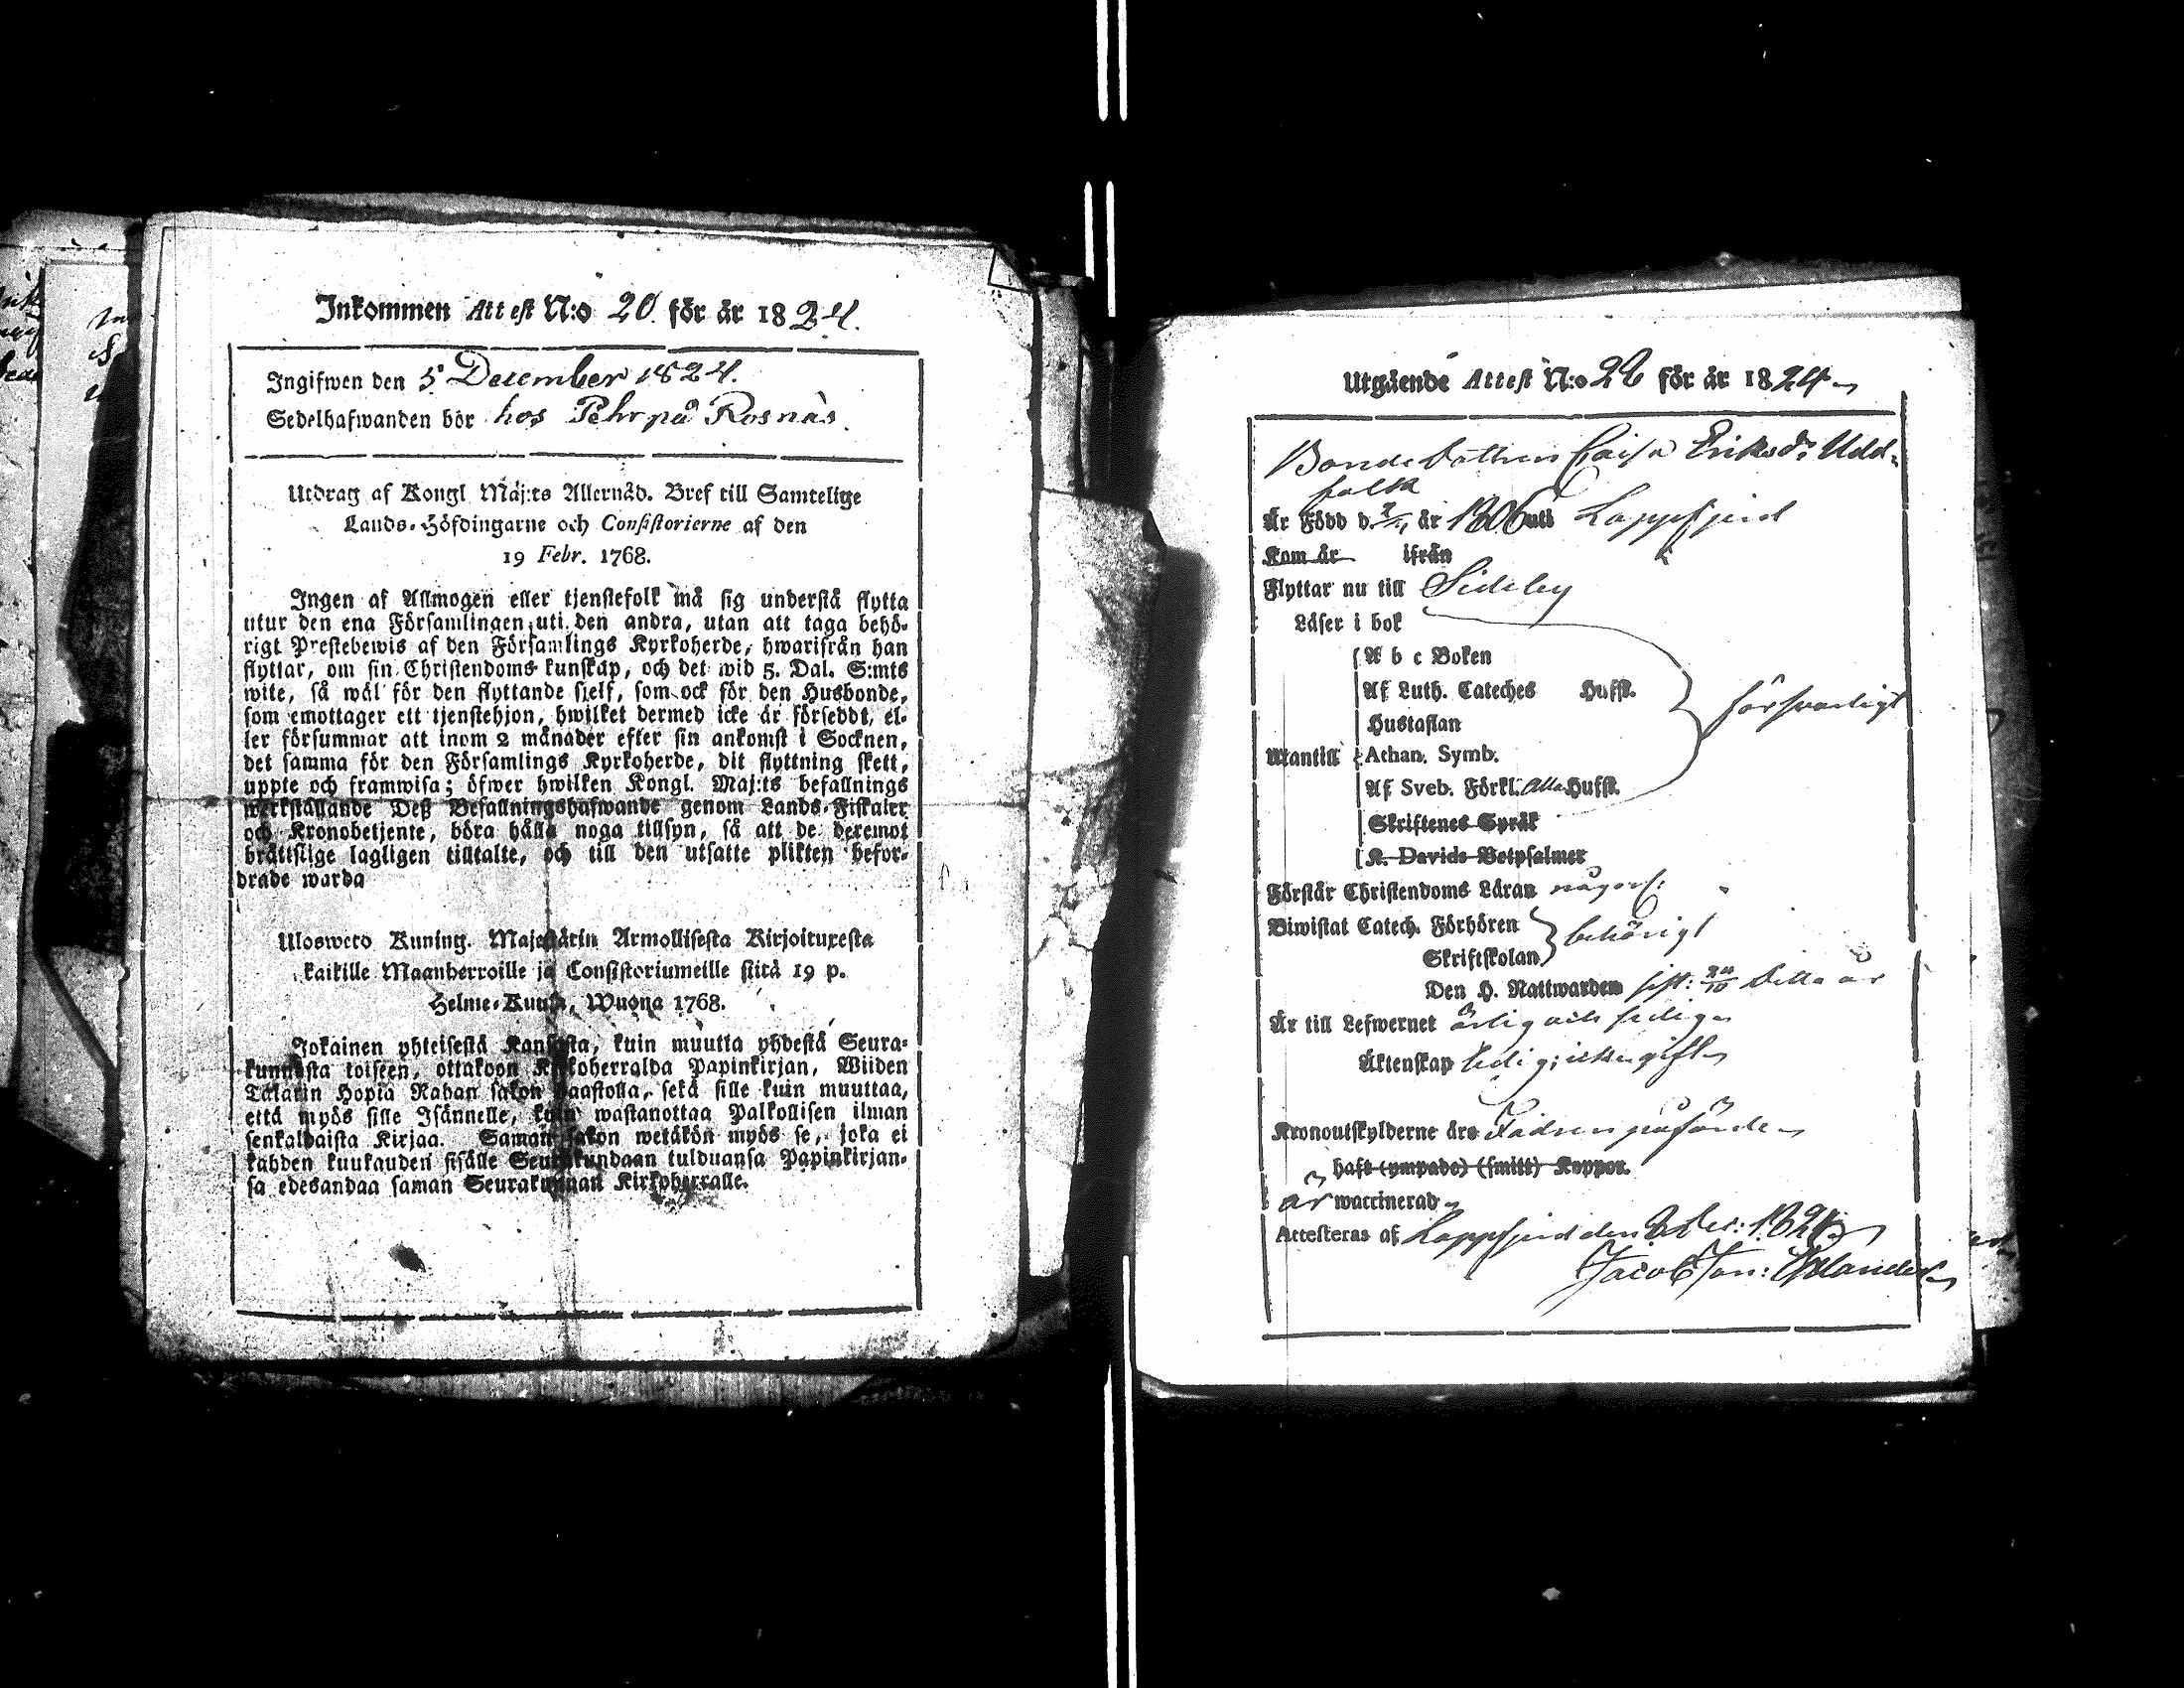 Inkommen Attest N:o 20. för år 1824.
Ingifwen den 5 December 1824.
Sedelhafwanden bor hos Pehr på Rosnäs.
Utdrag af Kongl. Maj:ts Allernåd. Bref till Samtelige
Lands-Höfdingarne och Consistorierne af den
19 Febr. 1768.
Ingen af Allmogen eller tjenstefolk må sig understå flytta
utur den ena Församlingen uti den andra, utan att taga behö-
rigt Prestebewis af den Församlings Kyrkoherde, hwarifrån han
flyttar, om sin Christendoms kunskap, och det wid 5. Dal. S:mts
wite, så wäl för den flyttande sjelf, som ock för den Husbonde,
som emottager ett tjenstehjon, hwilket dermed icke är försedt, el-
ler försummar att inom 2 månader efter sin ankomst i Socknen,
det samma för den Församlings Kyrkoherde, dit flyttning skett,
uppte och framwisa; öfwer hwilken Kongl. Maj:ts befallnings
werkställande Deß Befallningshafwande genom Lands-Fiskaler
och Kronobetjente, böra hålla noga tillsyn, så att de deremot
brättslige lagligen tilltalte, och till den utsatte plikten befor-
drade warda
Uloswero Kuning. Majestätin Armollisesta Kirjoituxesta
kaikille Maanherroille ja Consistoriumeille siitä 19 p.
Helme-Kuuta, Wuona 1768.
Jokainen yhteisestä Kansasta, kuin muutta yhdestä Seura-
kunnasta toiseen, ottakoon Kirkoherralda Papinkirjan, Wiiden
Talarin Hopia Rahan sakon haastolla, sekä sille kuin muuttaa,
että myös sille Isännelle, kuin wastanottaa Palkollisen ilman
senkaldaista Kirjaa. Saman sakon wetäkön myös se, joka ei
kahden kuukauden sisälle Seurakundaan tulduansa Papinkirjan-
sa edesandaa saman Seurakunnan Kirkoherralle.
Utgående Attest N:o 26 för år 1824
Bondedottren Caisa Eriksdr Udd-
folk
Är Född d. år 1806 uti Lappfjerd
Kom år ifrån
Flyttar nu till Sideby
Läser i bok
A b c Boken
Af Luth. Cateches Hufst.
Hustaflan försvarligt
Utantill Athan. Symb.
Af Sveb. Förkl. alla Hufst.
Skriftenes Språk
K. Davids Botpsalmer
Förstår Christendoms Läran någorl:
Biwistat Catech. Förhören behörigt
Skriftskolan
Den H. Nattwarden sist: 24/10 detta år
Är till Lefwernet ärlig och sedig
Äktenskap ledig; icke gift
Kronoutskylderne äro Fadren påförde
haft (ympade) (smitt) Koppor.
är waccinerad
Attesteras af Lappfjerd den Dec: 1824
Jacob Jon: